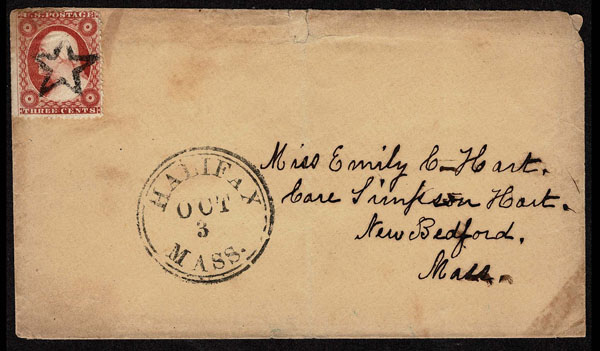 U.S. POSTAGE
THREE CENTS
HALIFAX
OCT
3
MASS.
Miss Emily C. Hart.
Care Simpson Hart.
New Bedford.
Mass.